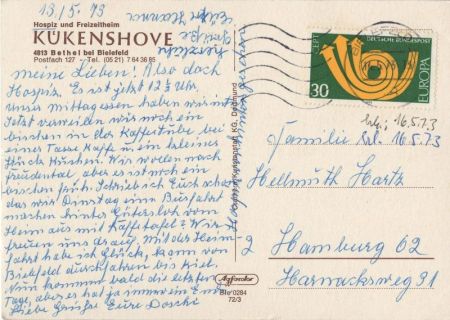 13/5. 73
Hospiz und Freizeitheim
KÜKENSHOVE
4813 Bethel bei Bielefeld
Postfach 127 - Tel. (05 21) 7 64 36 85
meine Lieben! Also doch
Hospiz. Es ist jetzt 12½ Uhr
unser Mittagessen haben wir
Jetzt verweilen wir noch ein
bischen in der Kaffeestube bei
einer Tasse Kaffe u. ein kleines
Stück Kuchen. Wir wollen nach
freudental aber es ist noch ein
bischen früh. Schrieb ich Euch schon
das wir Dienstag eine Busfahrt
machen hinter Gütersloh vom
Heim aus mit Kaffetafel? Wir
freuen uns drauf. Mit der Heim-
fahrt habe ich Glück, kann von
Bielefeld durchfahren bis Kiel.
Nun kommen bald die letzten
Tage, aber es hat ja immer ein Ende
Liebe Grüße Eure
herzliche
Grüße
Eure Hanna
SEPT
DEUTSCHE BUNDESPOST
EUROPA
30
16.5.73
Familie
16.5.73
Hellmuth Hartz
2 Hamburg 62
Harnacksweg 31
Bie 0284
72/3